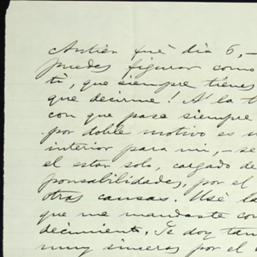 Antier fué día 6, —
puedes figurar como
tú, que siempre tienes
que decirme! A la t
con que pase siempre
por doble motivo es u
interior para mi, — se
el estar solo, cargado de
ponsabilidades, por el
otras causas. Usé la
que me mandaste con
decimiento. Te doy tam
muy sinceras por el